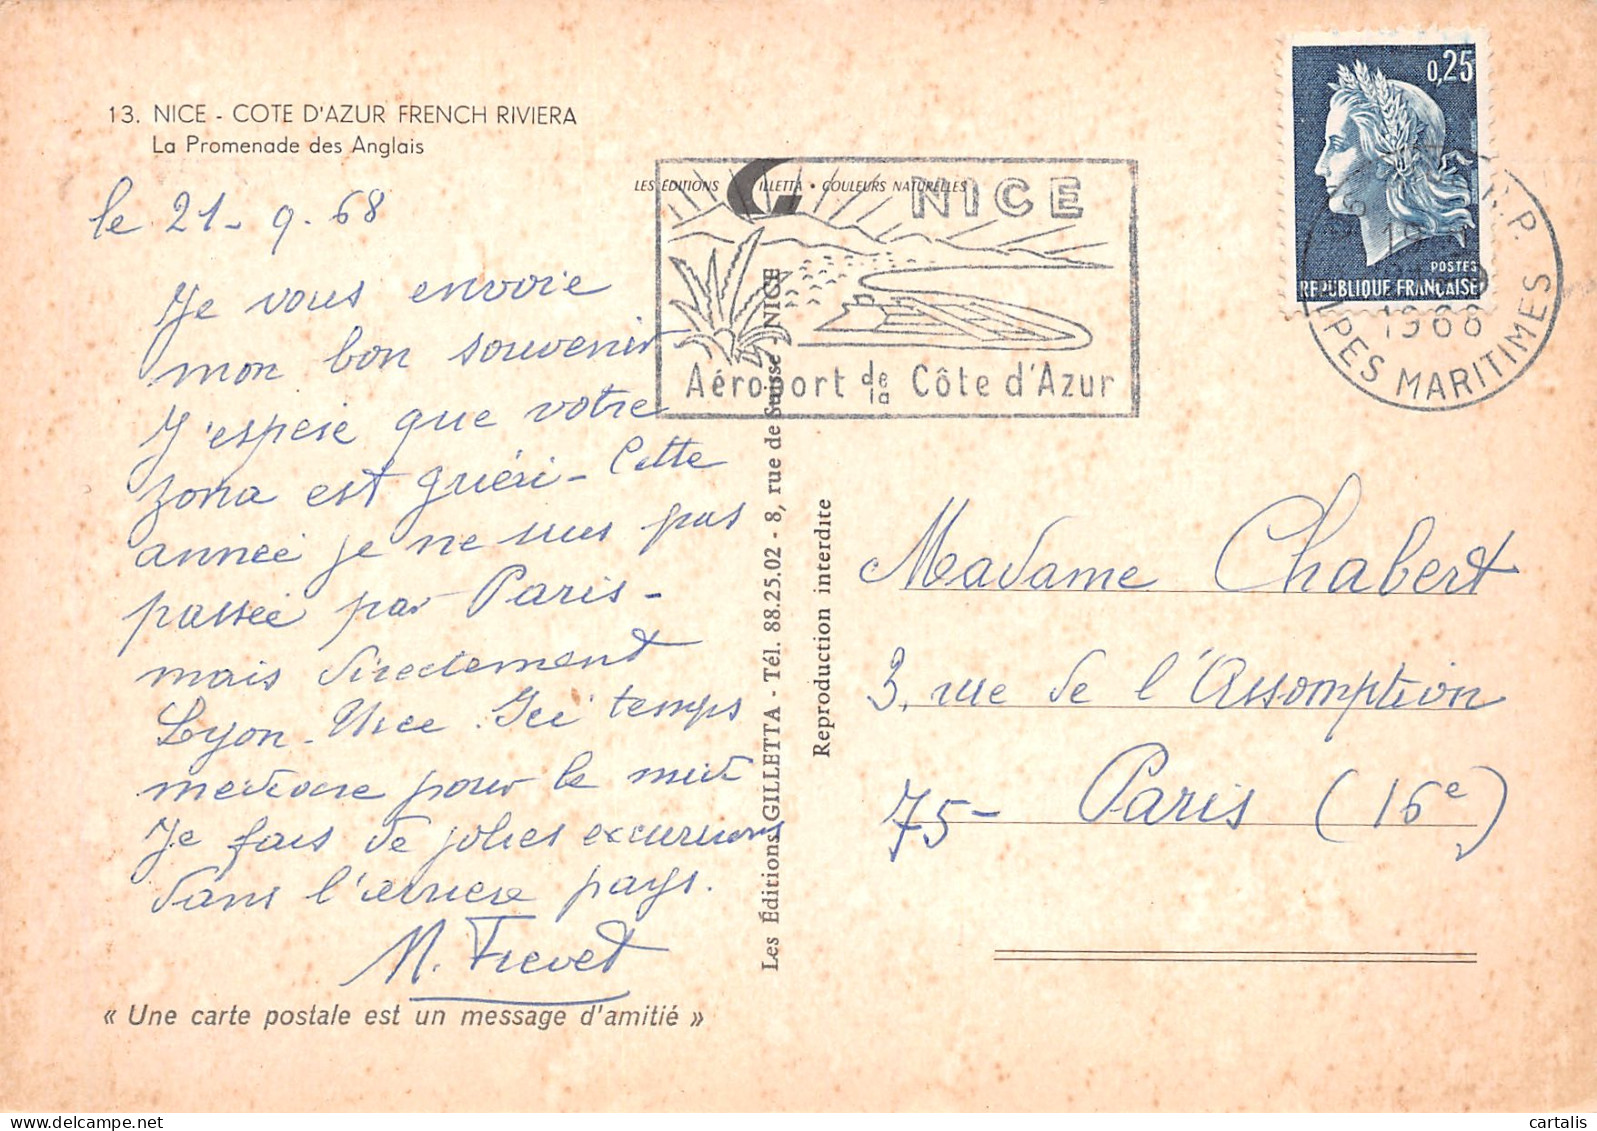 13. NICE - COTE D'AZUR FRENCH RIVIERA
La Promenade des Anglais
le 21-9.68
Je vous envoie
mon bon souvenir
J'espère que votre
zona est guéri - Cette
année je ne suis pas
passée par Paris -
mais directement
Lyon - Nice. Ici temps
médiocre pour le midi
Je fais de jolies excursions
dans l'arrière pays.
M. Frevet
« Une carte postale est un message d'amitié »
LES ÉDITIONS GILLETTA • COULEURS NATURELLES
NICE
Aéroport de la Côte d'Azur
Les Éditions GILLETTA - Tél. 88.25.02 - 8, rue de Suisse - NICE
Reproduction interdite
0,25
POSTES
REPUBLIQUE FRANÇAISE
R.P.
1968
ALPES MARITIMES
Madame Chabert
3, rue de l'Assomption
75- Paris (16e)
cartalis